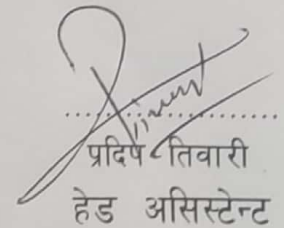 प्रदिप तिवारी
हेड असिस्टेन्ट